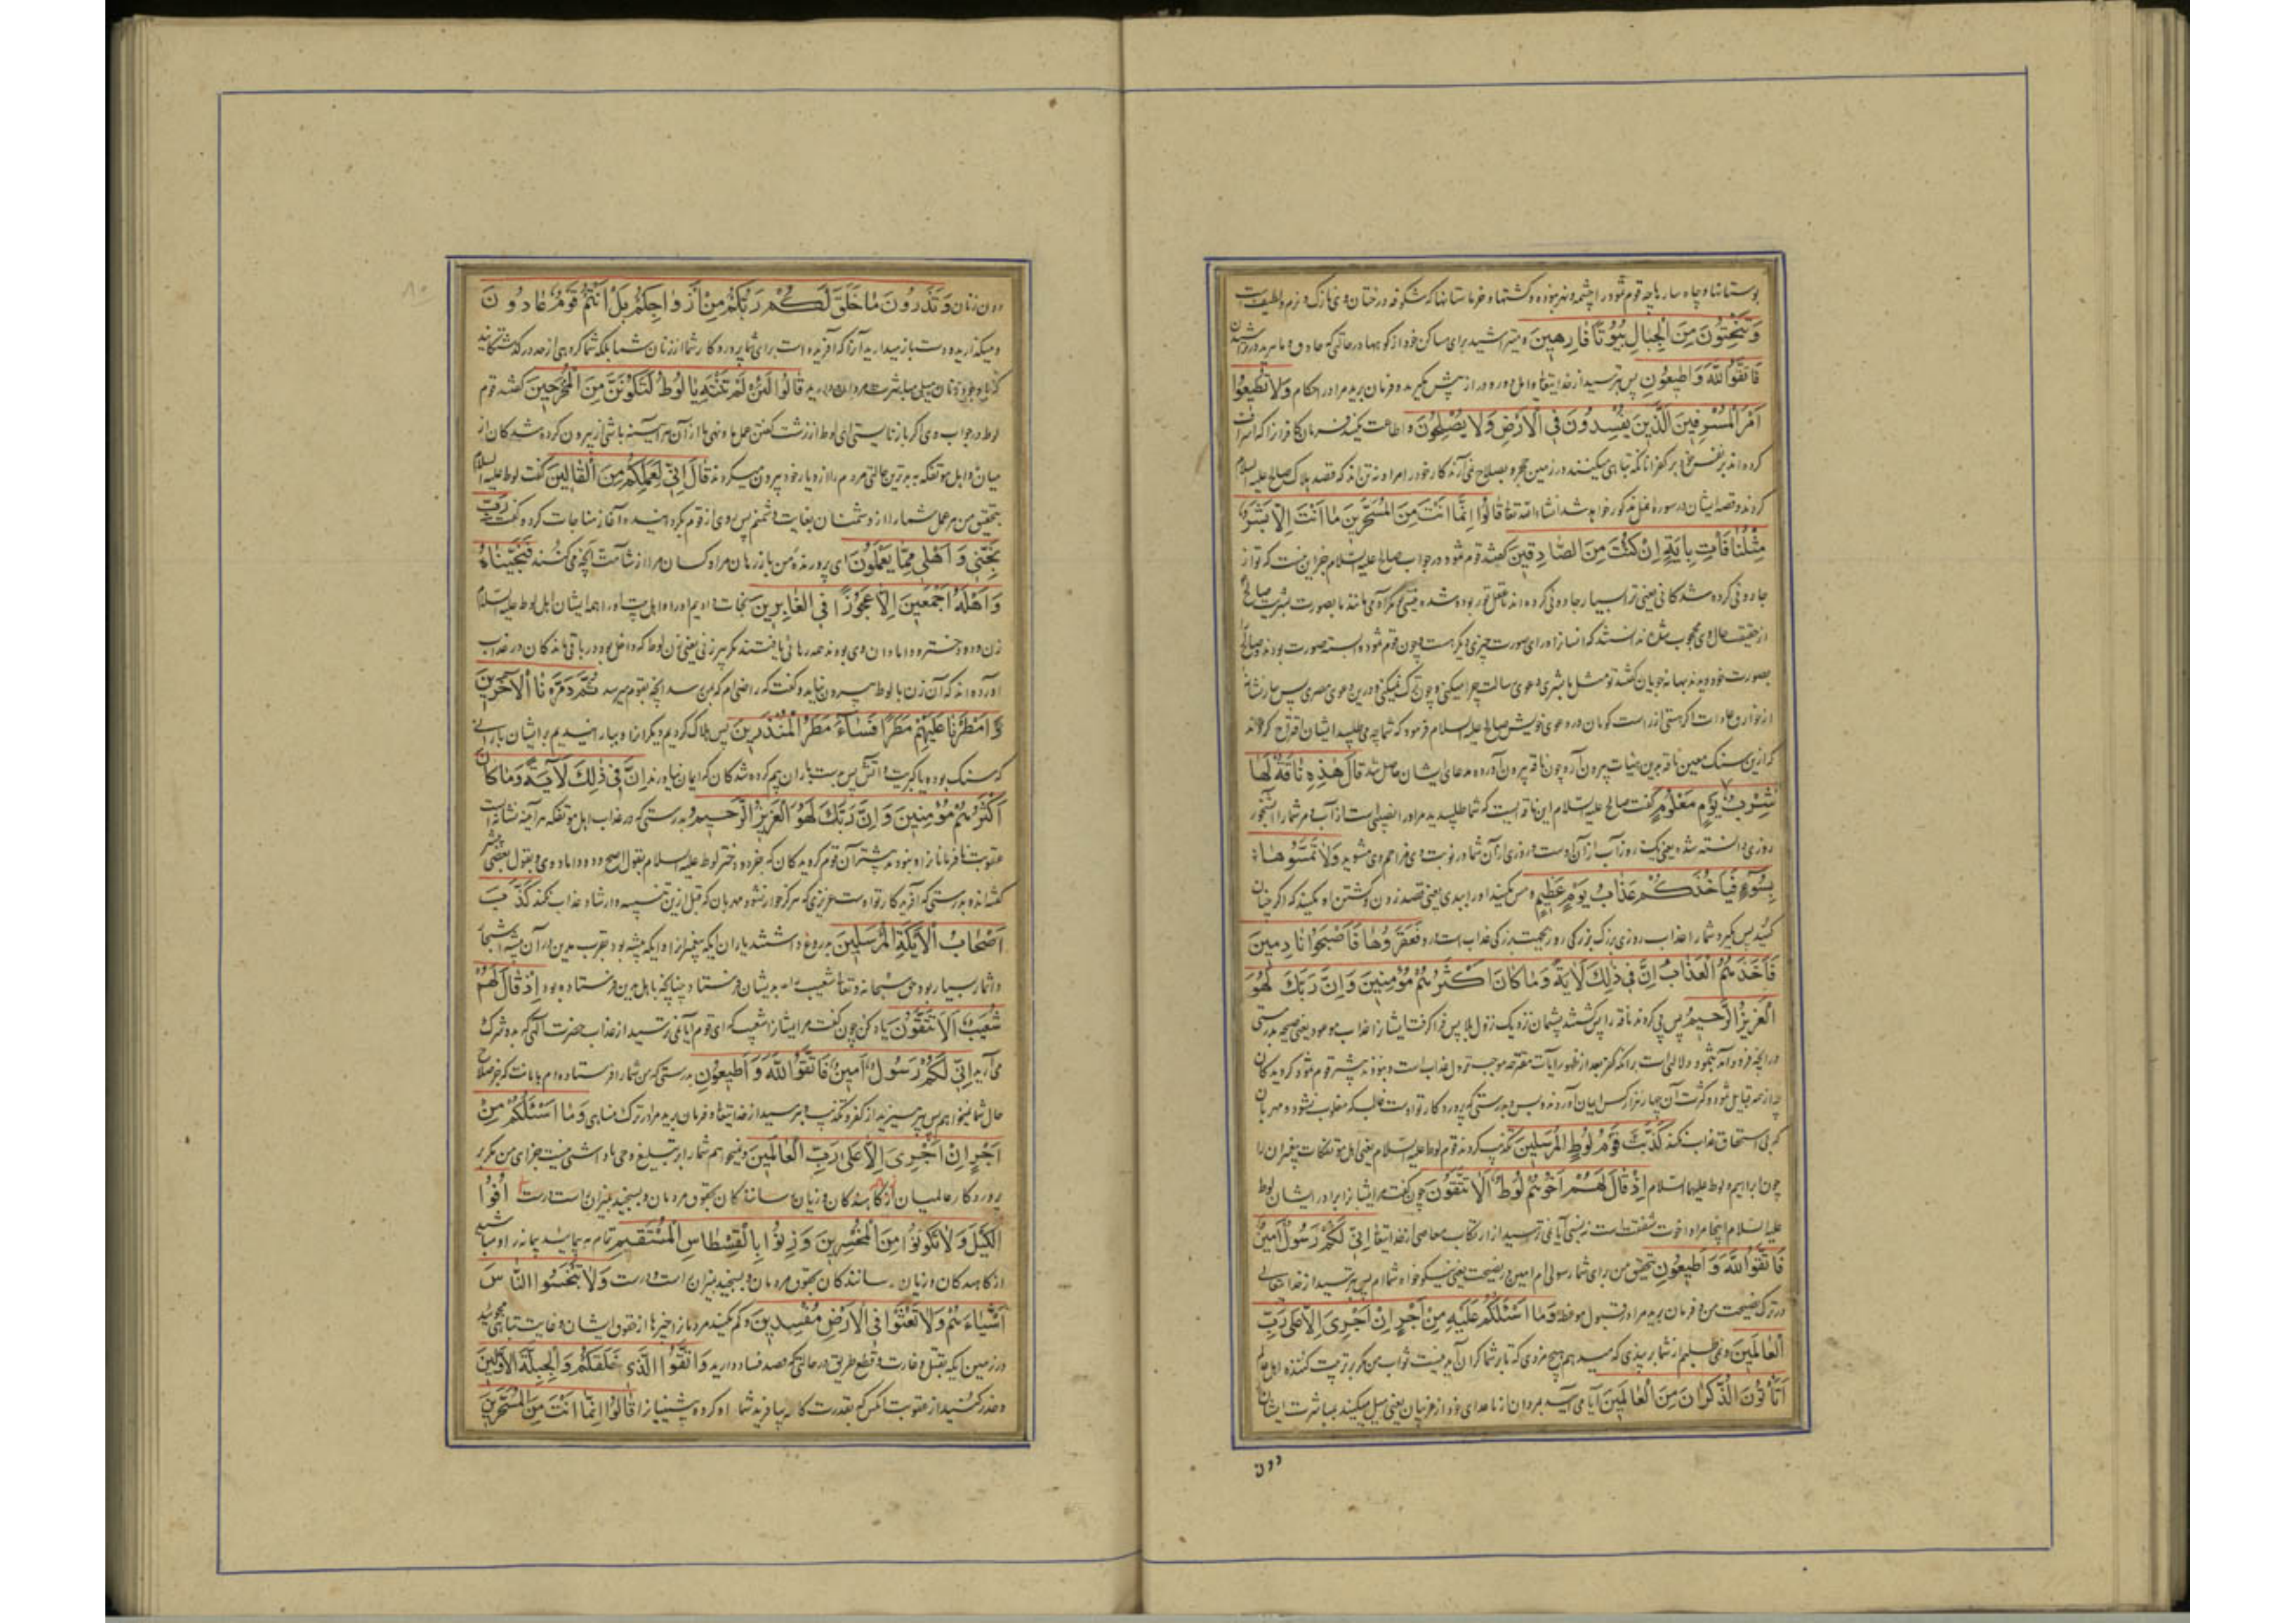 بوستانها و چاه سار باچه قوم ثمود را چشمه و نهر نبوده و کشتها و خرماستانها که شکوفه درختان وی نازک و نرم و لطیف است
وَتَنْحِتُونَ مِنَ الْجِبَالِ بُيُوتًا فَارِهِينَ و میتراشید برای مساکن خود از کوهها در حالتی که حاذق و ماهرید در تراشیدن
فَاتَّقُوا اللَّهَ وَأَطِيعُونِ پس بترسید از خدایتعالی و امل دور و دراز پیش مگیرید و فرمان برید مرا در احکام وَلَا تُطِيعُوا
أَمْرَ الْمُسْرِفِينَ الَّذِينَ يُفْسِدُونَ فِي الْأَرْضِ وَلَا يُصْلِحُونَ و اطاعت مکنید فرمان کافرانرا که اسراف
کرده اند بر نفس خود بکفر آنانکه تباهی میکنند در زمین حجر و بصلاح نمی آرند کار خود را مراد نه تن اند که قصد هلاک صالح علیه السلام
کردند و قصه ایشان در سوره نمل مذکور خواهد شد انشاء الله تعالی قَالُوا إِنَّمَا أَنْتَ مِنَ الْمُسَحَّرِينَ مَا أَنْتَ إِلَّا بَشَرٌ
مِثْلُنَا فَأْتِ بِآيَةٍ إِنْ كُنْتَ مِنَ الصَّادِقِينَ گفتند قوم ثمود در جواب صالح علیه السلام جز این نیست که تو از
جادوئی کرده شدگانی یعنی ترا بسیار جادوئی کرده اند تا عقل تو ربوده شده نیستی تو مگر آدمی مانند ما بصورت بشریت صالح
از حقیقت حال وی محجوب شدند ندانستند که انسانرا ورای صورت چیزی دیگر هست و چون قوم ثمود وابسته صورت بودند و صالح
بصورت خود دیدند بهانه جویان گفتند تو مثل ما بشری دعوی رسالت چرا میکنی و چون ترک نمیکنی و درین دعوی مصری پس بیار نشانه
از خوارق عادات اگر هستی از راست گویان در دعوی خویش صالح علیه السلام فرمود که شما چه می طلبید ایشان اقتراح کردند
که ازین سنگ معین ناقه برین هیات بیرون آر و چون ناقه بیرون آورده مدعای ایشان حاصل شد قَالَ هَذِهِ نَاقَةٌ لَهَا
شِرْبٌ يَوْمٍ مَعْلُومٍ گفت صالح علیه السلام این ناقه ایست که شما طلبیدید مر او را نصیبی است از آب و مر شما را آبشخور
روزی دانسته شده یعنی یک روز آب ازان اوست و روزی ازان شما در نوبت وی مزاحم وی مشوید وَلَا تَمَسُّوهَا
بِسُوءٍ فَيَأْخُذَكُمْ عَذَابُ يَوْمٍ عَظِيمٍ و مس مکنید او را ببدی یعنی قصد زدن و کشتن او مکنید که اگر چنان
کنید پس بگیرد شما را عذاب روزی بزرگ بزرگی روز بجهت بزرگی عذاب است درو فَعَقَرُوهَا فَأَصْبَحُوا نَادِمِينَ
فَأَخَذَهُمُ الْعَذَابُ إِنَّ فِي ذَلِكَ لَآيَةً وَمَا كَانَ أَكْثَرُهُمْ مُؤْمِنِينَ وَإِنَّ رَبَّكَ لَهُوَ
الْعَزِيزُ الرَّحِيمُ پس پی کردند ناقه را پس گشتند پشیمان نزدیک نزول بلا پس فرا گرفت ایشانرا عذاب موعود یعنی صیحه بدرستی
در آنچه فرود آمد بثمود دلالتی است برانکه کفر بعد از ظهور آیات مقترحه موجب نزول عذاب است و نبودند بیشتر قوم ثمود گرویدگان
چه از همه قبایل ثمود و کثرت آن چهار هزار کس ایمان آوردند و بس و بدرستی که پروردگار تو اوست غالب که مغلوب نشود و مهربان
که بی استحقاق عذاب نکند كَذَّبَتْ قَوْمُ لُوطٍ الْمُرْسَلِينَ تکذیب کردند قوم لوط علیه السلام یعنی اهل موتفکات پیغمبران را
چون ابراهیم و لوط علیهما السلام إِذْ قَالَ لَهُمْ أَخُوهُمْ لُوطٌ أَلَا تَتَّقُونَ چون گفت مر ایشانرا برادر ایشان لوط
علیه السلام اینجا مراد اخوت شفقت است نه نسبی آیا نمی ترسید از ارتکاب معاصی از خدایتعالی إِنِّي لَكُمْ رَسُولٌ أَمِينٌ
فَاتَّقُوا اللَّهَ وَأَطِيعُونِ بتحقیق من برای شما رسولی ام امین در نصیحت یعنی نیکو خواه شما ام پس بترسید از خدایتعالی
در ترک نصیحت من و فرمان برید مرا در قبول موعظه وَمَا أَسْئَلُكُمْ عَلَيْهِ مِنْ أَجْرٍ إِنْ أَجْرِيَ إِلَّا عَلَى رَبِّ
الْعَالَمِينَ و نمی طلبم از شما بر پندی که میدهم هیچ مزدی که تا بر شما گران آید نیست ثواب من مگر بر تربیت کننده اهل عالم
أَتَأْتُونَ الذُّكْرَانَ مِنَ الْعَالَمِينَ آیا می آیید بمردان از ماعدای خود از غریبان یعنی میل میکنید بمباشرت ایشان
دون
دون زنان وَتَذَرُونَ مَا خَلَقَ لَكُمْ رَبُّكُمْ مِنْ أَزْوَاجِكُمْ بَلْ أَنْتُمْ قَوْمٌ عَادُونَ
و میگذارید و دست باز میدارید آنرا که آفریده است برای شما پروردگار شما از زنان شما بلکه شما گروهی از حد درگذشتگانید
که با وجود زنان میل مباشرت مردان دارید قَالُوا لَئِنْ لَمْ تَنْتَهِ يَا لُوطُ لَتَكُونَنَّ مِنَ الْمُخْرَجِينَ گفتند قوم
لوط در جواب وی اگر باز نایستی ای لوط از زشت گفتن عمل ما و نهی ما ازان هر آیینه باشی از بیرون کرده شدگان از
میان و اهل موتفکه به بدترین حالتی مردم را از دیار خود بیرون میکردند قَالَ إِنِّي لِعَمَلِكُمْ مِنَ الْقَالِينَ گفت لوط علیه السلام
بتحقیق من مر عمل شما را از دشمنان بغایت دشمنم پس روی از قوم بگردانیده آغاز مناجات کرد و گفت رَبِّ
نَجِّنِي وَأَهْلِي مِمَّا يَعْمَلُونَ ای پرورنده من باز رهان مرا و کسان مرا از شآمت آنچه می کنند فَنَجَّيْنَاهُ
وَأَهْلَهُ أَجْمَعِينَ إِلَّا عَجُوزًا فِي الْغَابِرِينَ نجات دادیم او را و اهل بیت او را همه ایشان اهل لوط علیه السلام
زن و دو دختر و دامادان وی بودند همه رهائی یافتند مگر پیرزنی یعنی زن لوط که داخل بود در باقی ماندگان در عذاب
آورده اند که آن زن با لوط بیرون نیامد و گفت که راضی ام که بمن رسد آنچه بقوم میرسد ثُمَّ دَمَّرْنَا الْآخَرِينَ
وَأَمْطَرْنَا عَلَيْهِمْ مَطَرًا فَسَاءَ مَطَرُ الْمُنْذَرِينَ پس هلاک کردیم دیگرانرا و ببارانیدیم بر ایشان بارانی
که سنگ بوده یا کبریت و آتش پس بد است باران بیم کرده شدگان که ایمان نیاوردند إِنَّ فِي ذَلِكَ لَآيَةً وَمَا كَانَ
أَكْثَرُهُمْ مُؤْمِنِينَ وَإِنَّ رَبَّكَ لَهُوَ الْعَزِيزُ الرَّحِيمُ و بدرستی که در عذاب اهل موتفکه هر آیینه نشانه است
عقوبت نافرمانانرا و نبودند بیشتر آن قوم گرویدگان که جز دو دختر لوط علیه السلام بقول اصح و دو داماد وی و بقول بعضی
گفته اند و بدرستی که آفریدگار تو اوست عزیزی که هرگز خوار نشود مهربان که قبل از تنبیه و ارشاد عذاب نکند كَذَّبَ
أَصْحَابُ الْأَيْكَةِ الْمُرْسَلِينَ بدروغ داشتند یاران ایکه پیغمبرانرا و ایکه بیشه بود بقرب مدین دران بیشه اشجار
و اثمار بسیار بود حق سبحانه و تعالی شعیب را بدیشان فرستاد چنانچه باهل مدین فرستاده بود إِذْ قَالَ لَهُمْ
شُعَيْبٌ أَلَا تَتَّقُونَ یاد کن چون گفت مر ایشانرا شعیب که ای قوم آیا نمی ترسید از عذاب حضرت الهی که بدو شرک
می آرید إِنِّي لَكُمْ رَسُولٌ أَمِينٌ فَاتَّقُوا اللَّهَ وَأَطِيعُونِ بدرستی که من شما را فرستاده ام با امانت که جز صلاح
حال شما نمیخواهم پس بپرهیزید از کفر و تکذیب و بترسید از خدایتعالی و فرمان برید مرا در ترک مناهی وَمَا أَسْئَلُكُمْ مِنْ
أَجْرٍ إِنْ أَجْرِيَ إِلَّا عَلَى رَبِّ الْعَالَمِينَ و نمیخواهم شما را بر تبلیغ وحی پاداشی نیست جزای من مگر بر
پروردگار عالمیان از کاهندگان و زیان رسانندگان بحقوق مردمان و بسنجید بمیزان راست درست أَوْفُوا
الْكَيْلَ وَلَا تَكُونُوا مِنَ الْمُخْسِرِينَ وَزِنُوا بِالْقِسْطَاسِ الْمُسْتَقِيمِ تمام بپیمائید پیمانه را و مباشید
از کاهندگان و زیان رسانندگان بحقوق مردمان و بسنجید بمیزان راست درست وَلَا تَبْخَسُوا النَّاسَ
أَشْيَاءَهُمْ وَلَا تَعْثَوْا فِي الْأَرْضِ مُفْسِدِينَ و کم مکنید مردمانرا چیزها از حقوق ایشان و غایت تباهی مجوئید
در زمین ایکه بقتل و غارت و قطع طریق در حالتی که قصد فساد دارید وَاتَّقُوا الَّذِي خَلَقَكُمْ وَالْجِبِلَّةَ الْأَوَّلِينَ
و حذر کنید از عقوبت آنکس که بقدرت کامله بیافرید شما را و گروه پیشینیانرا قَالُوا إِنَّمَا أَنْتَ مِنَ الْمُسَحَّرِينَ